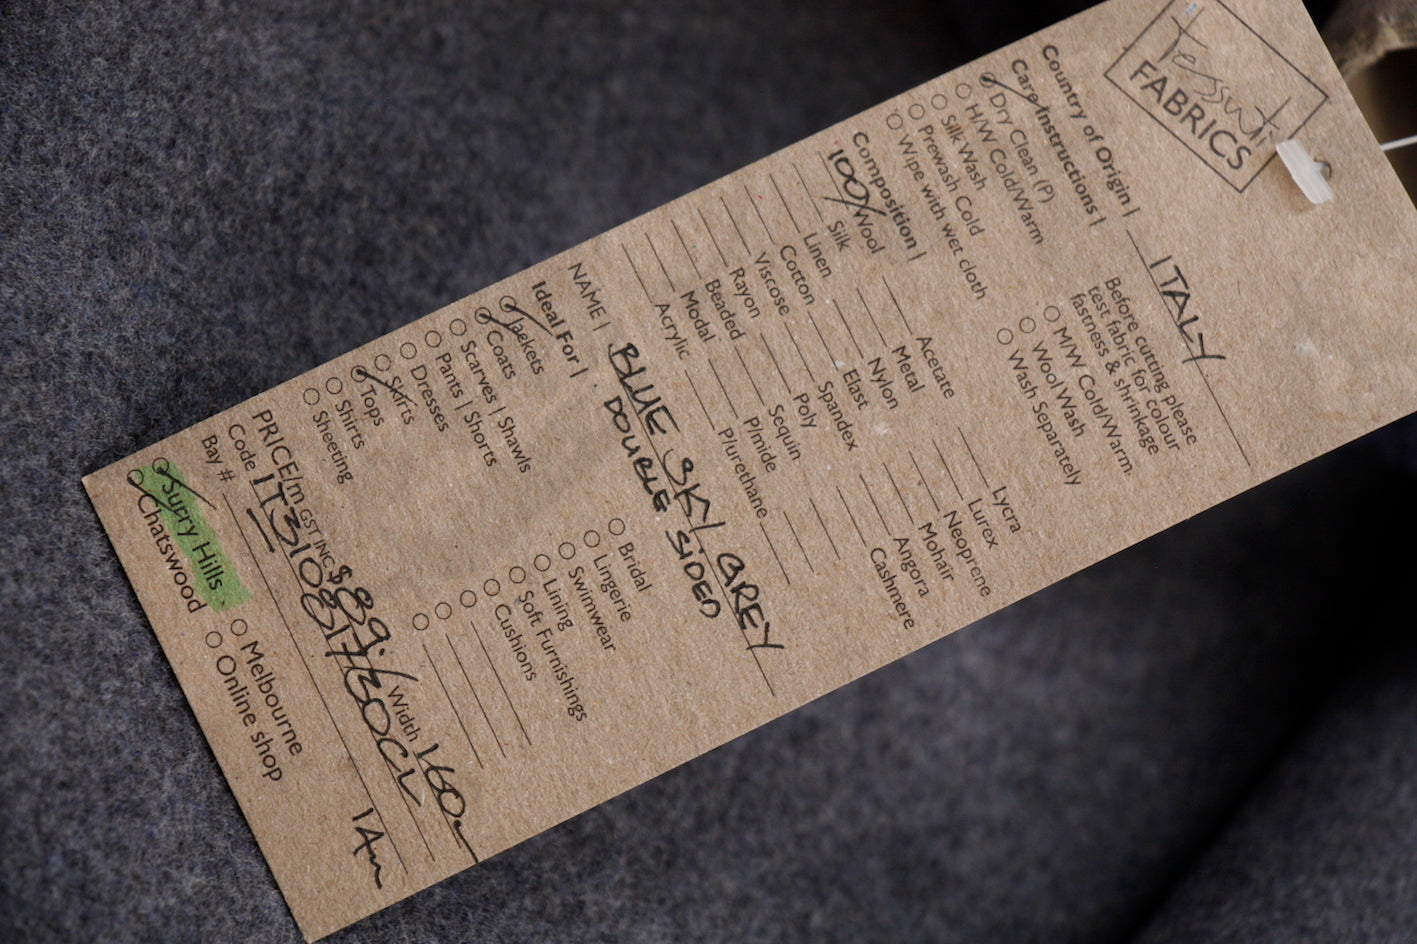 Tessuti
FABRICS
Country of Origin | ITALY
Care Instructions |
Dry Clean (P)
H/W Cold/Warm
Silk Wash
Prewash Cold
Wipe with wet cloth
Before cutting please
test fabric for colour
fastness & shrinkage
M/W Cold/Warm.
Wool Wash
Wash Separately
Composition |
100% Wool
Silk
Linen
Cotton
Viscose
Rayon
Beaded
Modal
Acrylic
Acetate
Metal
Nylon
Elast
Spandex
Poly
Sequin
P/mide
P/urethane
Lycra
Lurex
Neoprene
Mohair
Angora
Cashmere
NAME | BLUE SKY GREY
DOUBLE SIDED
Ideal For |
Jackets
Coats
Scarves | Shawls
Pants | Shorts
Dresses
Skirts
Tops
Shirts
Sheeting
Bridal
Lingerie
Swimwear
Lining
Soft Furnishings
Cushions
PRICE/m GST INC $89.- Width 160
Code
Bay #
Surry Hills
Chatswood
Melbourne
Online shop